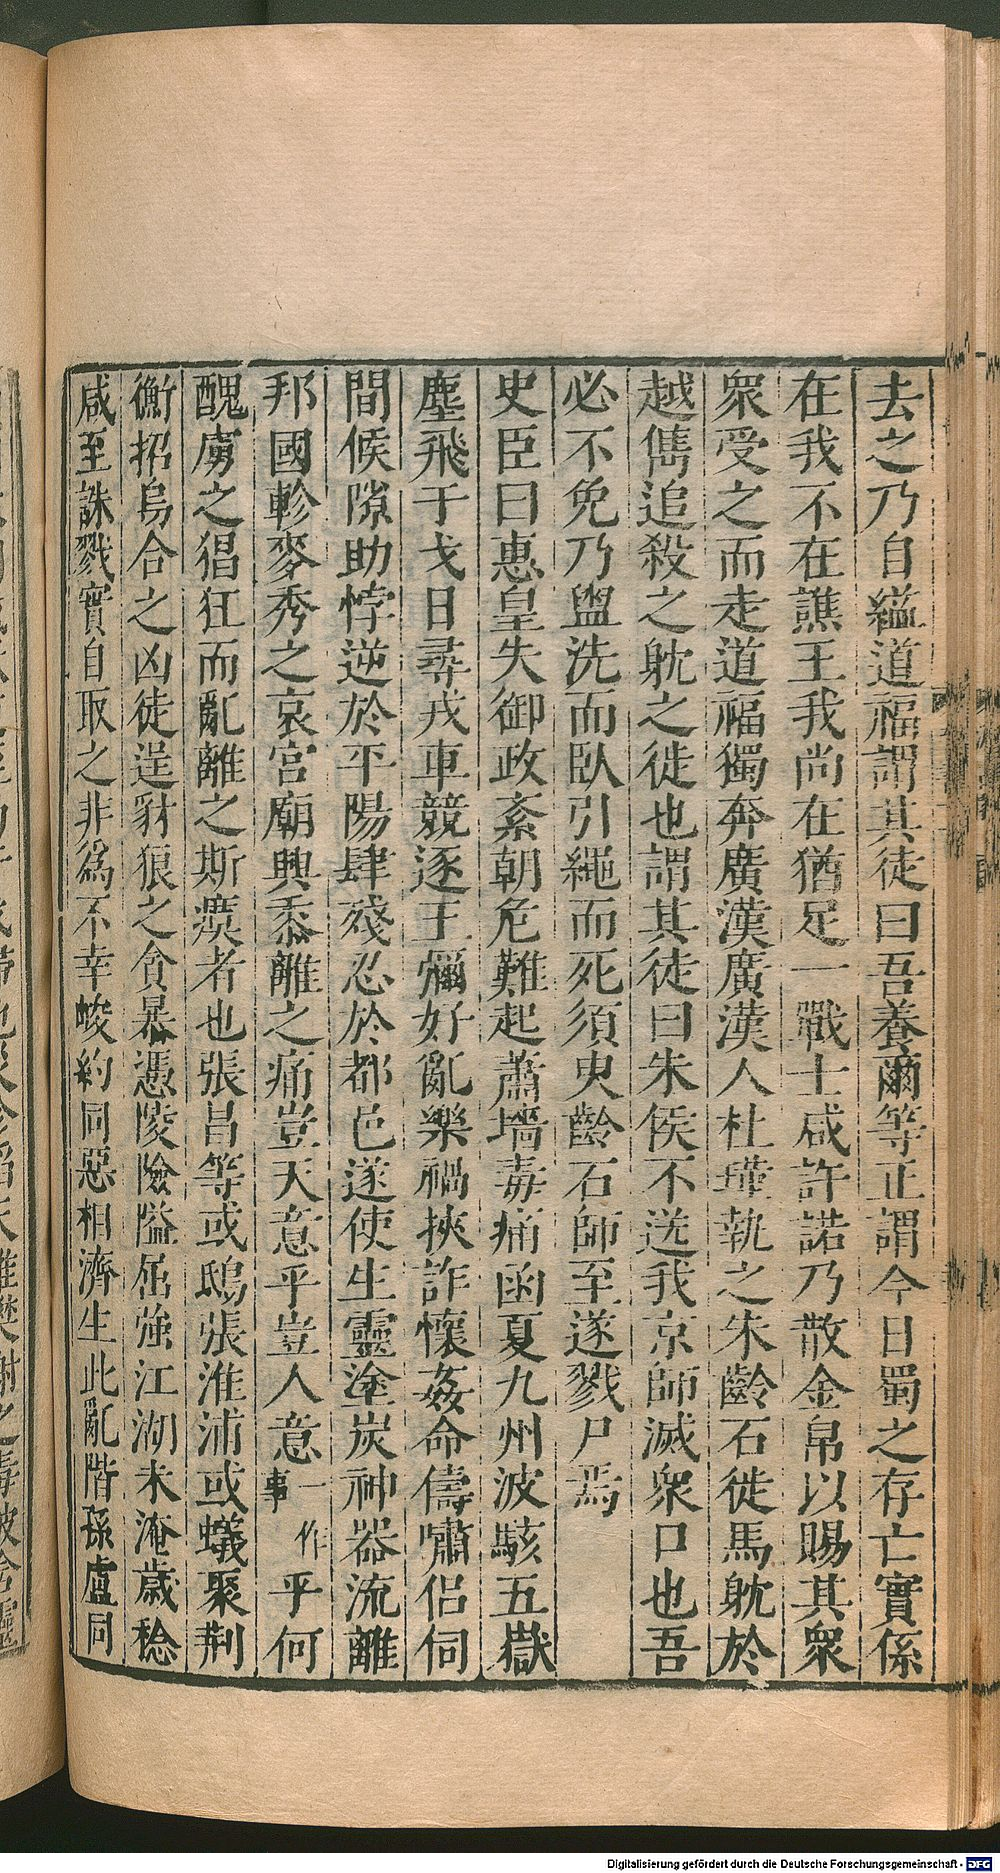 去之乃自縊道福謂其徒曰吾養爾等正謂今日蜀之存亡實係
在我不在譙王我尚在猶足一戰士咸許諾乃散金帛以賜其衆
衆受之而走道福獨奔廣漢廣漢人杜瑾執之朱齡石徙馬躭於
越雋追殺之躭之徙也謂其徒曰朱侯不送我京師滅衆口也吾
必不免乃盥洗而臥引繩而死須臾齡石師至遂戮尸焉
史臣曰惠皇失御政紊朝危難起蕭墻毒痛函夏九州波駭五嶽
塵飛于戈日尋戎車競逐王彌好亂樂禍挾詐懷姦命儔嘯侣伺
間候隙助悖逆於平陽肆殘忍於都邑遂使生靈塗炭神器流離
邦國軫麥秀之哀宮廟興黍離之痛豈天意乎豈人意一作事乎何
醜虜之猖狂而亂離之斯瘼者也張昌等或鴟張淮浦或蟻聚荆
衡招烏合之凶徒逞豺狼之貪暴憑陵險隘屈強江湖未淹歲稔
咸至誅戮實自取之非爲不幸峻約同惡相濟生此亂階孫盧同
Digitalisierung gefördert durch die Deutsche Forschungsgemeinschaft - DFG